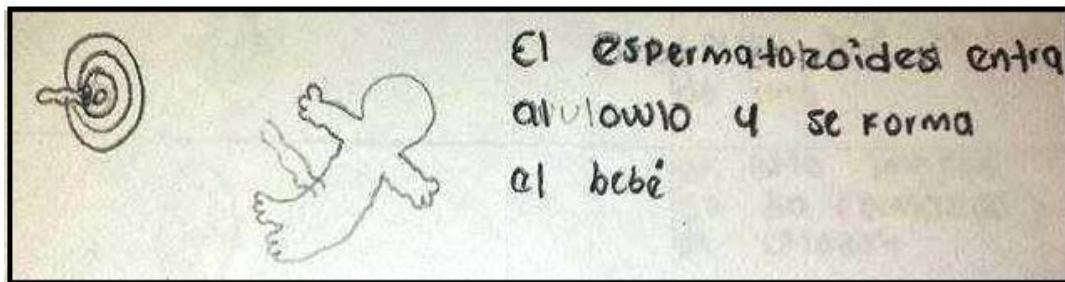 El espermatozoides entra
al ulowlo y se forma
el bebé